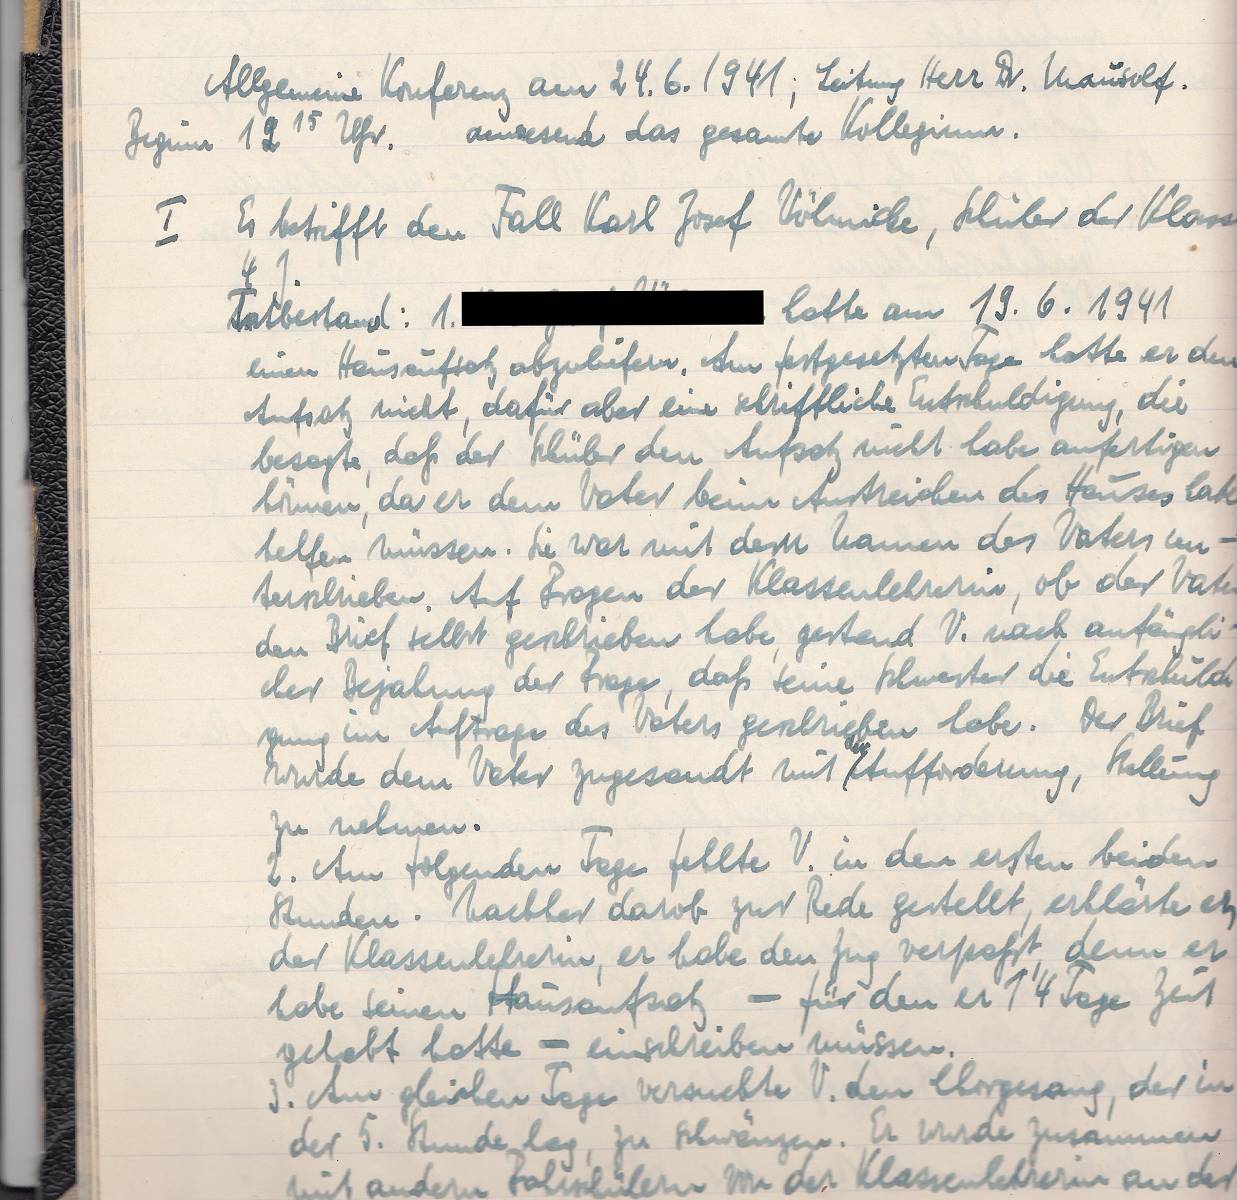 Allgemeine Konferenz am 24.6.1941; Leitung Herr Dr. Mausolf.
Beginn 12 15 Uhr. anwesend das gesamte Kollegium.
I Es betrifft den Fall Karl Josef Schüler der Klasse
4
Tatbestand: 1. hatte am 19.6.1941
einen Hausaufsatz abzuliefern. Am festgesetzten Tage hatte er den
Aufsatz nicht, dafür aber eine schriftliche Entschuldigung, die
besagte, daß der Schüler den Aufsatz nicht habe anfertigen
können, da er dem Vater beim Anstreichen des Hauses habe
helfen müssen. Sie war mit dem Namen des Vaters un-
terschrieben. Auf Fragen der Klassenlehrerin, ob der Vater
den Brief selbst geschrieben habe, gestand V. nach anfängli-
cher Bejahung der Frage, daß seine Schwester die Entschuldi
gung im Auftrage des Vaters geschrieben habe. Der Brief
wurde dem Vater zugesandt mit der Aufforderung, Stellung
zu nehmen.
2. Am folgenden Tage fehlte V. in den ersten beiden
Stunden. Nachher darob zur Rede gestellt, erklärte er,
der Klassenlehrerin, er habe den Zug verpaßt, denn er
habe seinen Hausaufsatz – für den er 14 Tage Zeit
gehabt hatte – einschreiben müssen.
3. Am gleichen Tage versuchte V. den Chorgesang, der in
der 5. Stunde lag, zu schwänzen. Er wurde zusammen
mit andern Fahrschülern von der Klassenlehrerin an der